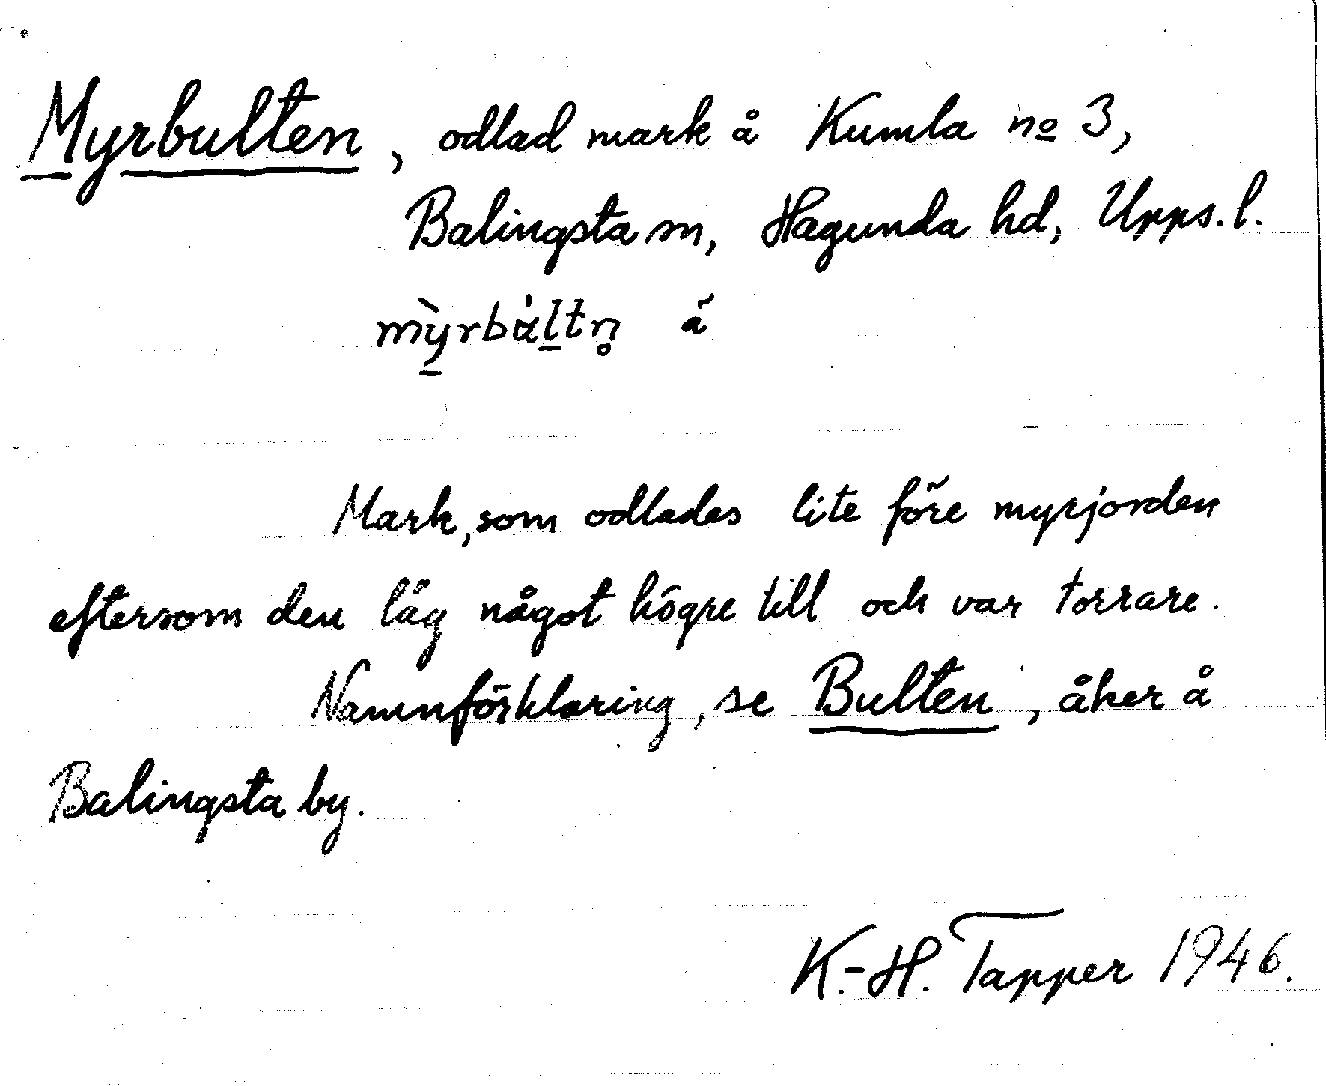 Myrbulten, odlad mark å Kumla nº 3,
Balingsta sn, Hagunda hd, Upps. l.
mỳrbùltn̥ å
Mark, som odlades lite före myrjorden
eftersom den låg något högre till och var torrare.
Namnförklaring, se Bulten, åker å
Balingsta by.
K.-H. Tapper 1946.